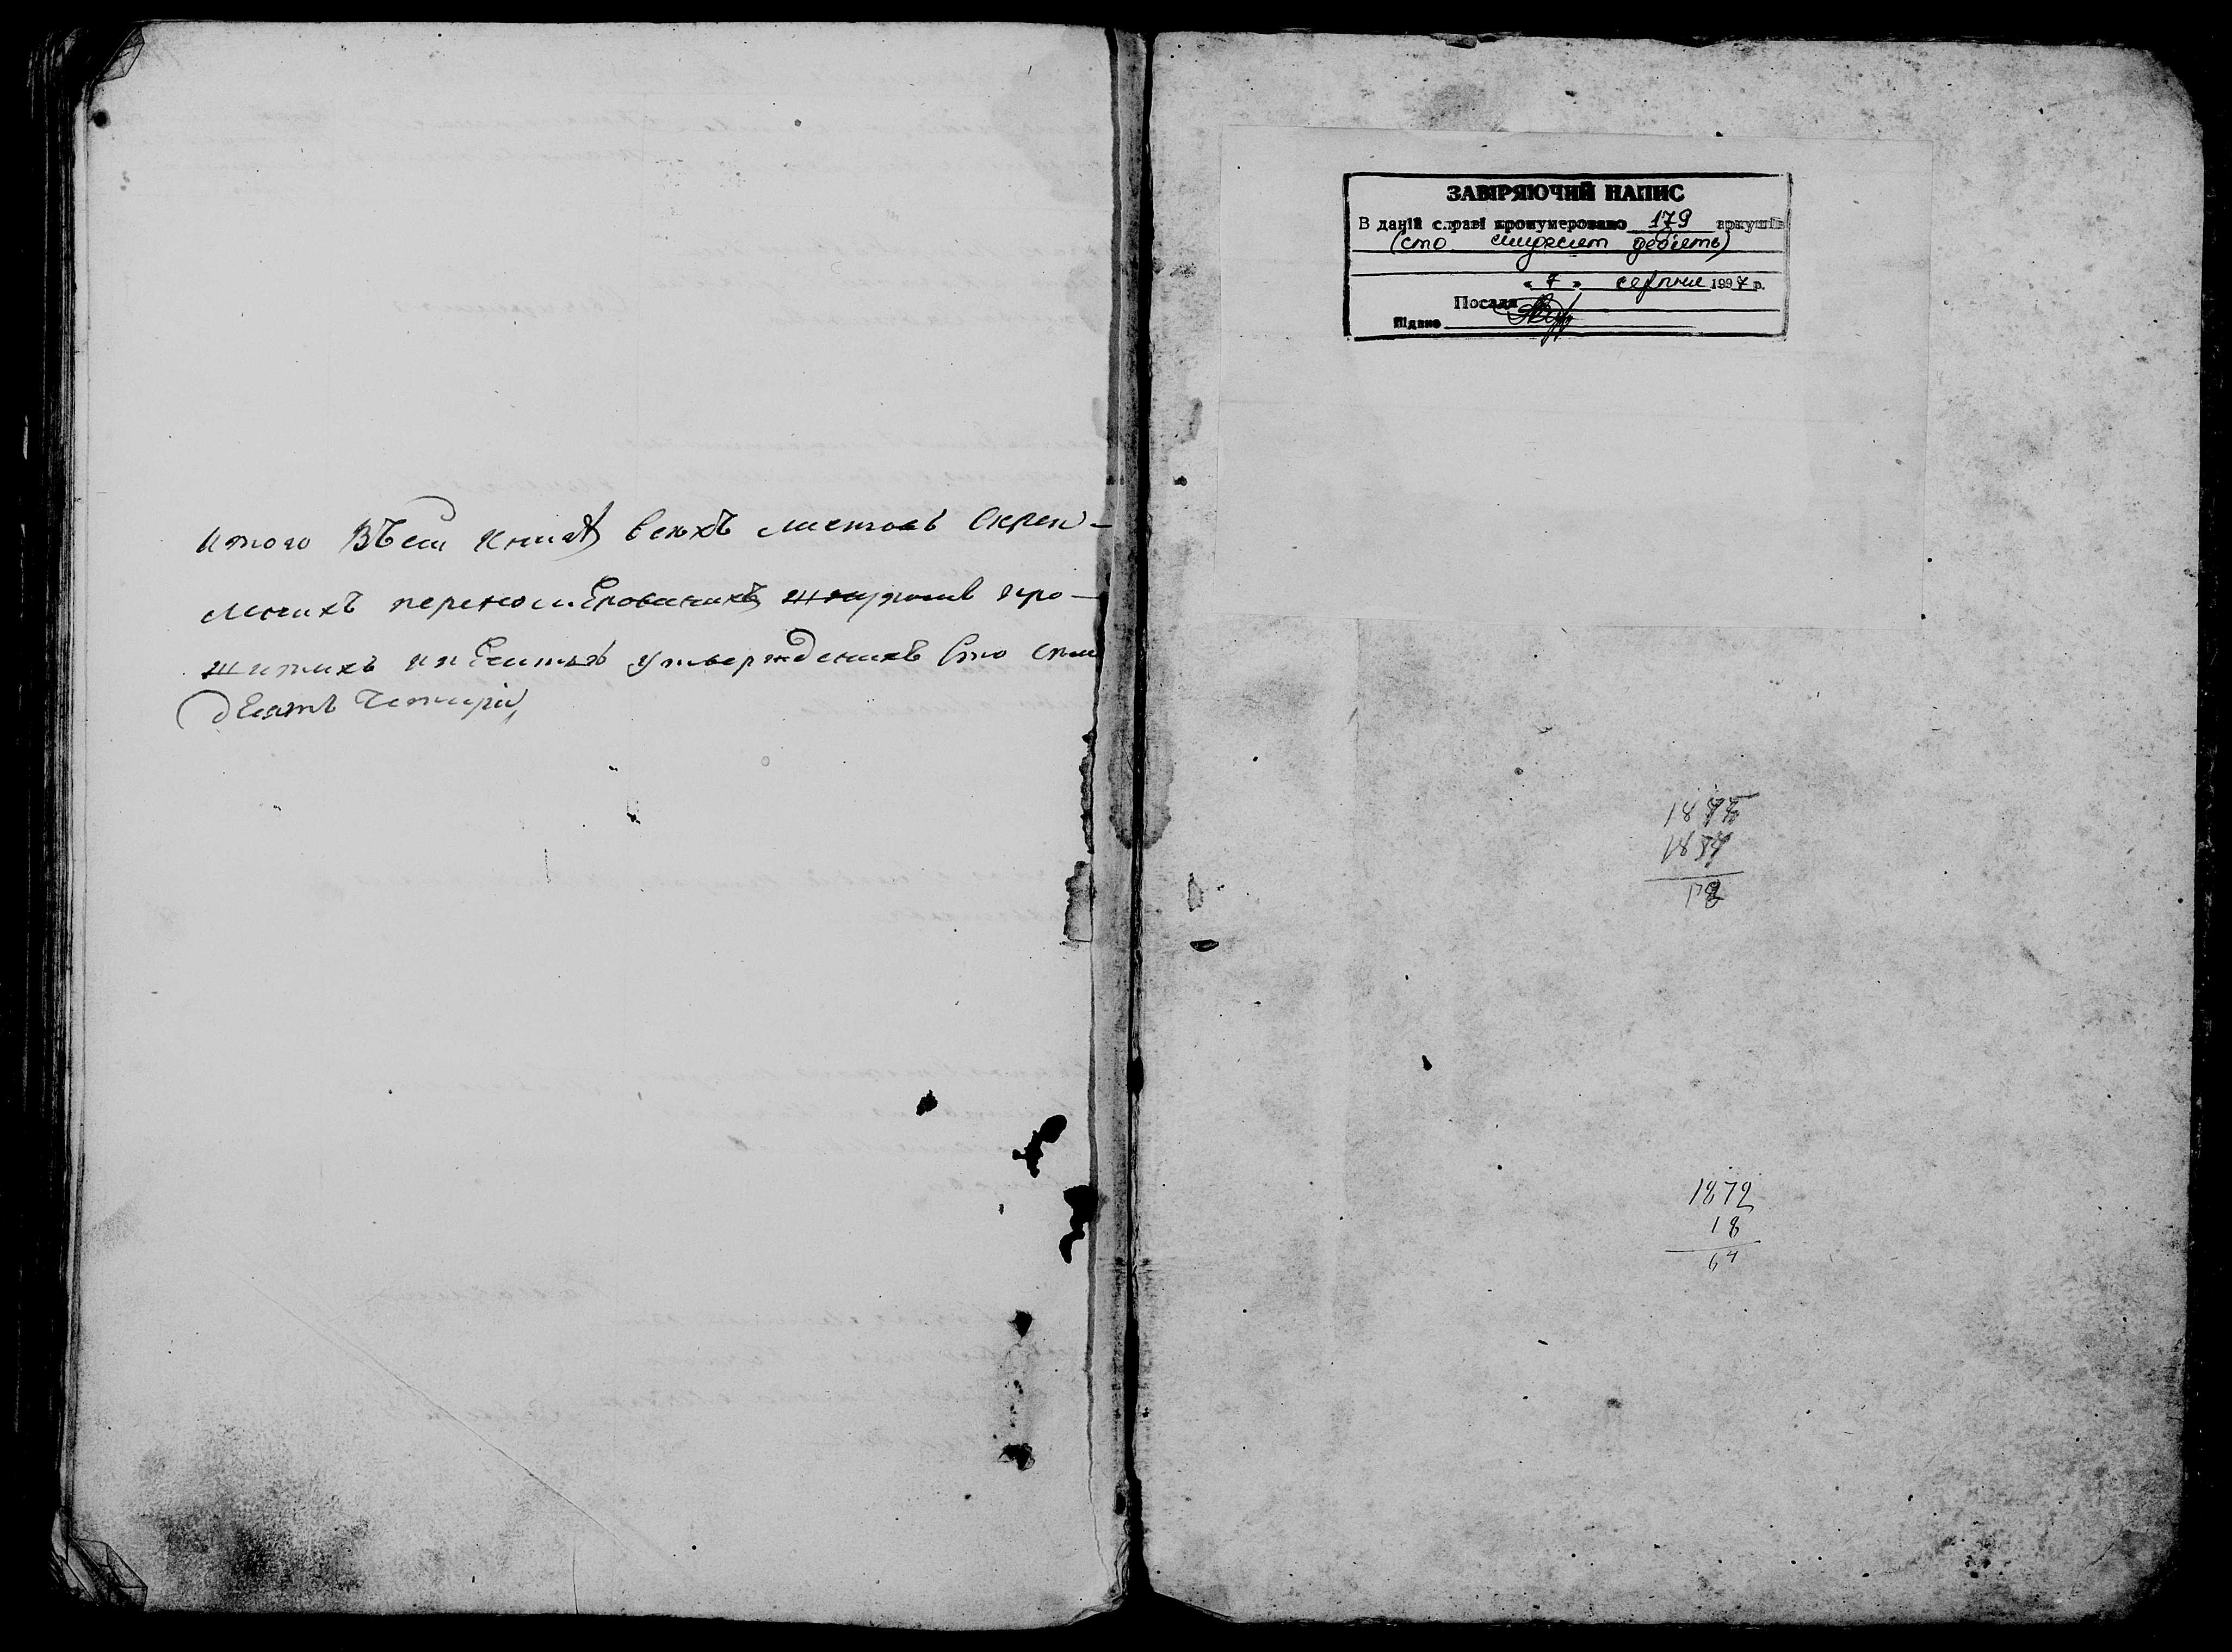 итого Въ сей книге всехъ листовъ скреп-
леныхъ перенумЕрованыхъ шнуромъ про-
шитыхъ утвержденыхъ Сто Сем
дЕсятъ Четыри
ЗАВІРЯЮЧИЙ НАПИС
В даній справі пронумеровано 179 аркушів
(сто сімдесят дев'ять)
« 7 » серпня 1997 р.
Посада
Підпис
18
1872
18
64